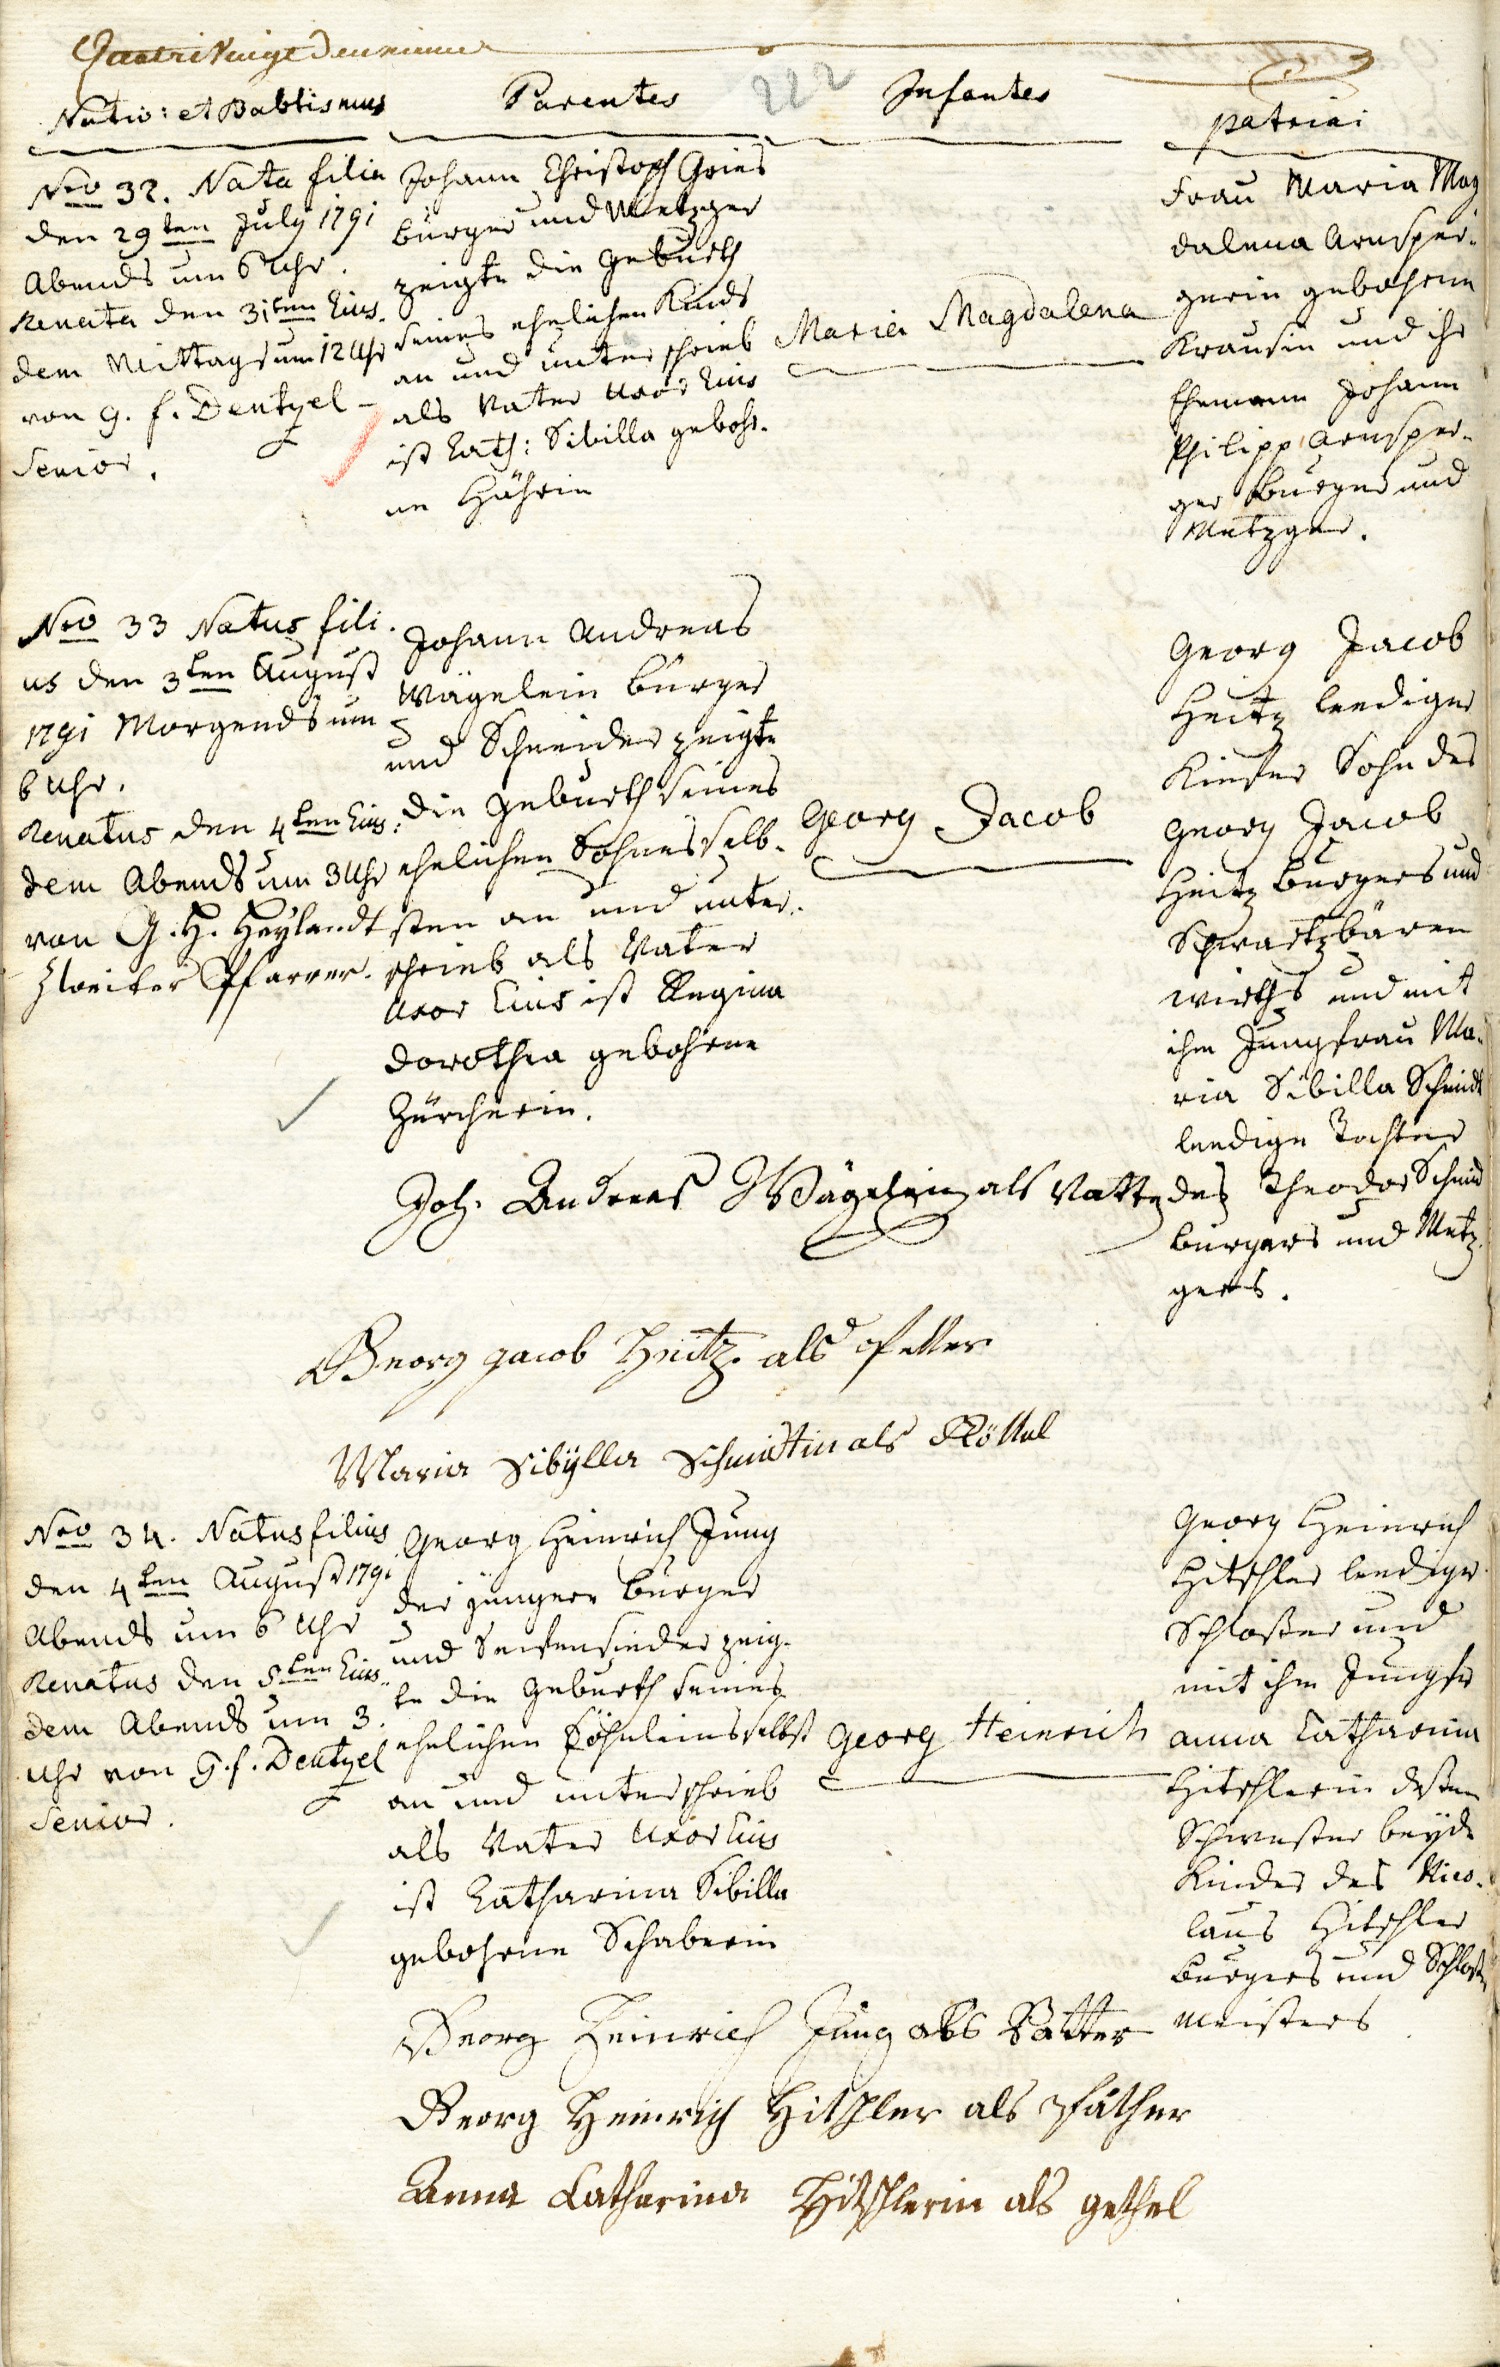 Quatri Vingt Deuxieme
222
Nativ: et Babtismus
Parentes
Infantes
patrini
Nro 32. Nata filia
den 29ten July 1791
Abends um 6 Uhr.
Renata den 31ten Eius.
dem Mittags um 12 Uhr
von G. f. Dentzel
Senior.
Johann Christoph Gries
bürger und Metzger
zeigte die Geburth
seines ehelichen Kinds
an und unterschrieb
als Vater Uxor Eius
ist Cath: Sibilla gebohr-
ne Hährin
Maria Magdalena
Frau Maria Mag
dalena Arnsper-
gerin gebohrene
Krausin und ihr
Ehemann Johann
Philipp Arnsper-
ger Burger und
Metzger.
Nro 33 Natus fili-
us den 3ten August
1791 Morgends um
6 Uhr.
Renatus den 4ten Eius:
dem Abends um 3 Uhr
von G. H. Heylandt
Zweiter Pfarrer.
Johann Andreas
Wägelein bürger
und Schneider zeigte
die Geburth seines
ehelichen Sohnes selb-
sten an und unter-
schrieb als Vater
Uxor Eius ist Regina
Dorothea gebohrne
Zürcherin.
Georg Jacob
Georg Jacob
Heitz leediger
Kiefer Sohn des
Georg Jacob
Heitz Burgers und
Schwartzbären
wirths und mit
ihm Jungfrau Ma-
ria Sibilla Schmidt
leedige Tochter
des Theodor Schmid
burgers und Metz-
gers.
Joh. Andreas Wägelein als Vatter
Georg Jacob Heitz. als Pfetter
Maria Sibÿlla Schmidtin als Göttel
Nro 34. Natus filius
den 4ten August 1791
Abends um 6 Uhr
Renatus den 5ten Eius.
dem Abends um 3.
Uhr von G. f. Dentzel
Senior.
Georg Heinrich Jung
der jüngere bürger
und Seifensieder zeig-
te die Geburth seines
ehelichen Söhnleins selbst
an und unterschrieb
als Vater Uxor Eius
ist Catharina Sibilla
gebohrene Schaberin
Georg Heinrich
Georg Heinrich
Hitschler leediger
Schloßer und
mit ihm Jungfr
anna Catharina
Hitschlerin deßen
Schwester beyde
Kinder des Nico-
laus Hitschler
Burgers und Schloßer
meisters
Georg Heinrich Jung als Vatter
Georg Heinrich Hitschler als Pfäther
Anna Catharina Hitschlerin als gethel